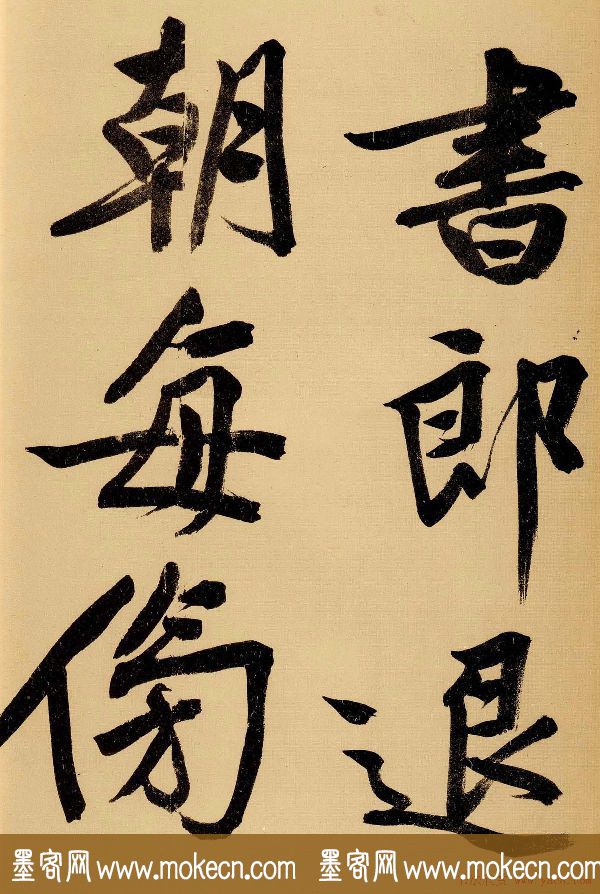 書郎退
朝每傍
墨客网 www.mokecn.com 墨客网 www.mokecn.com